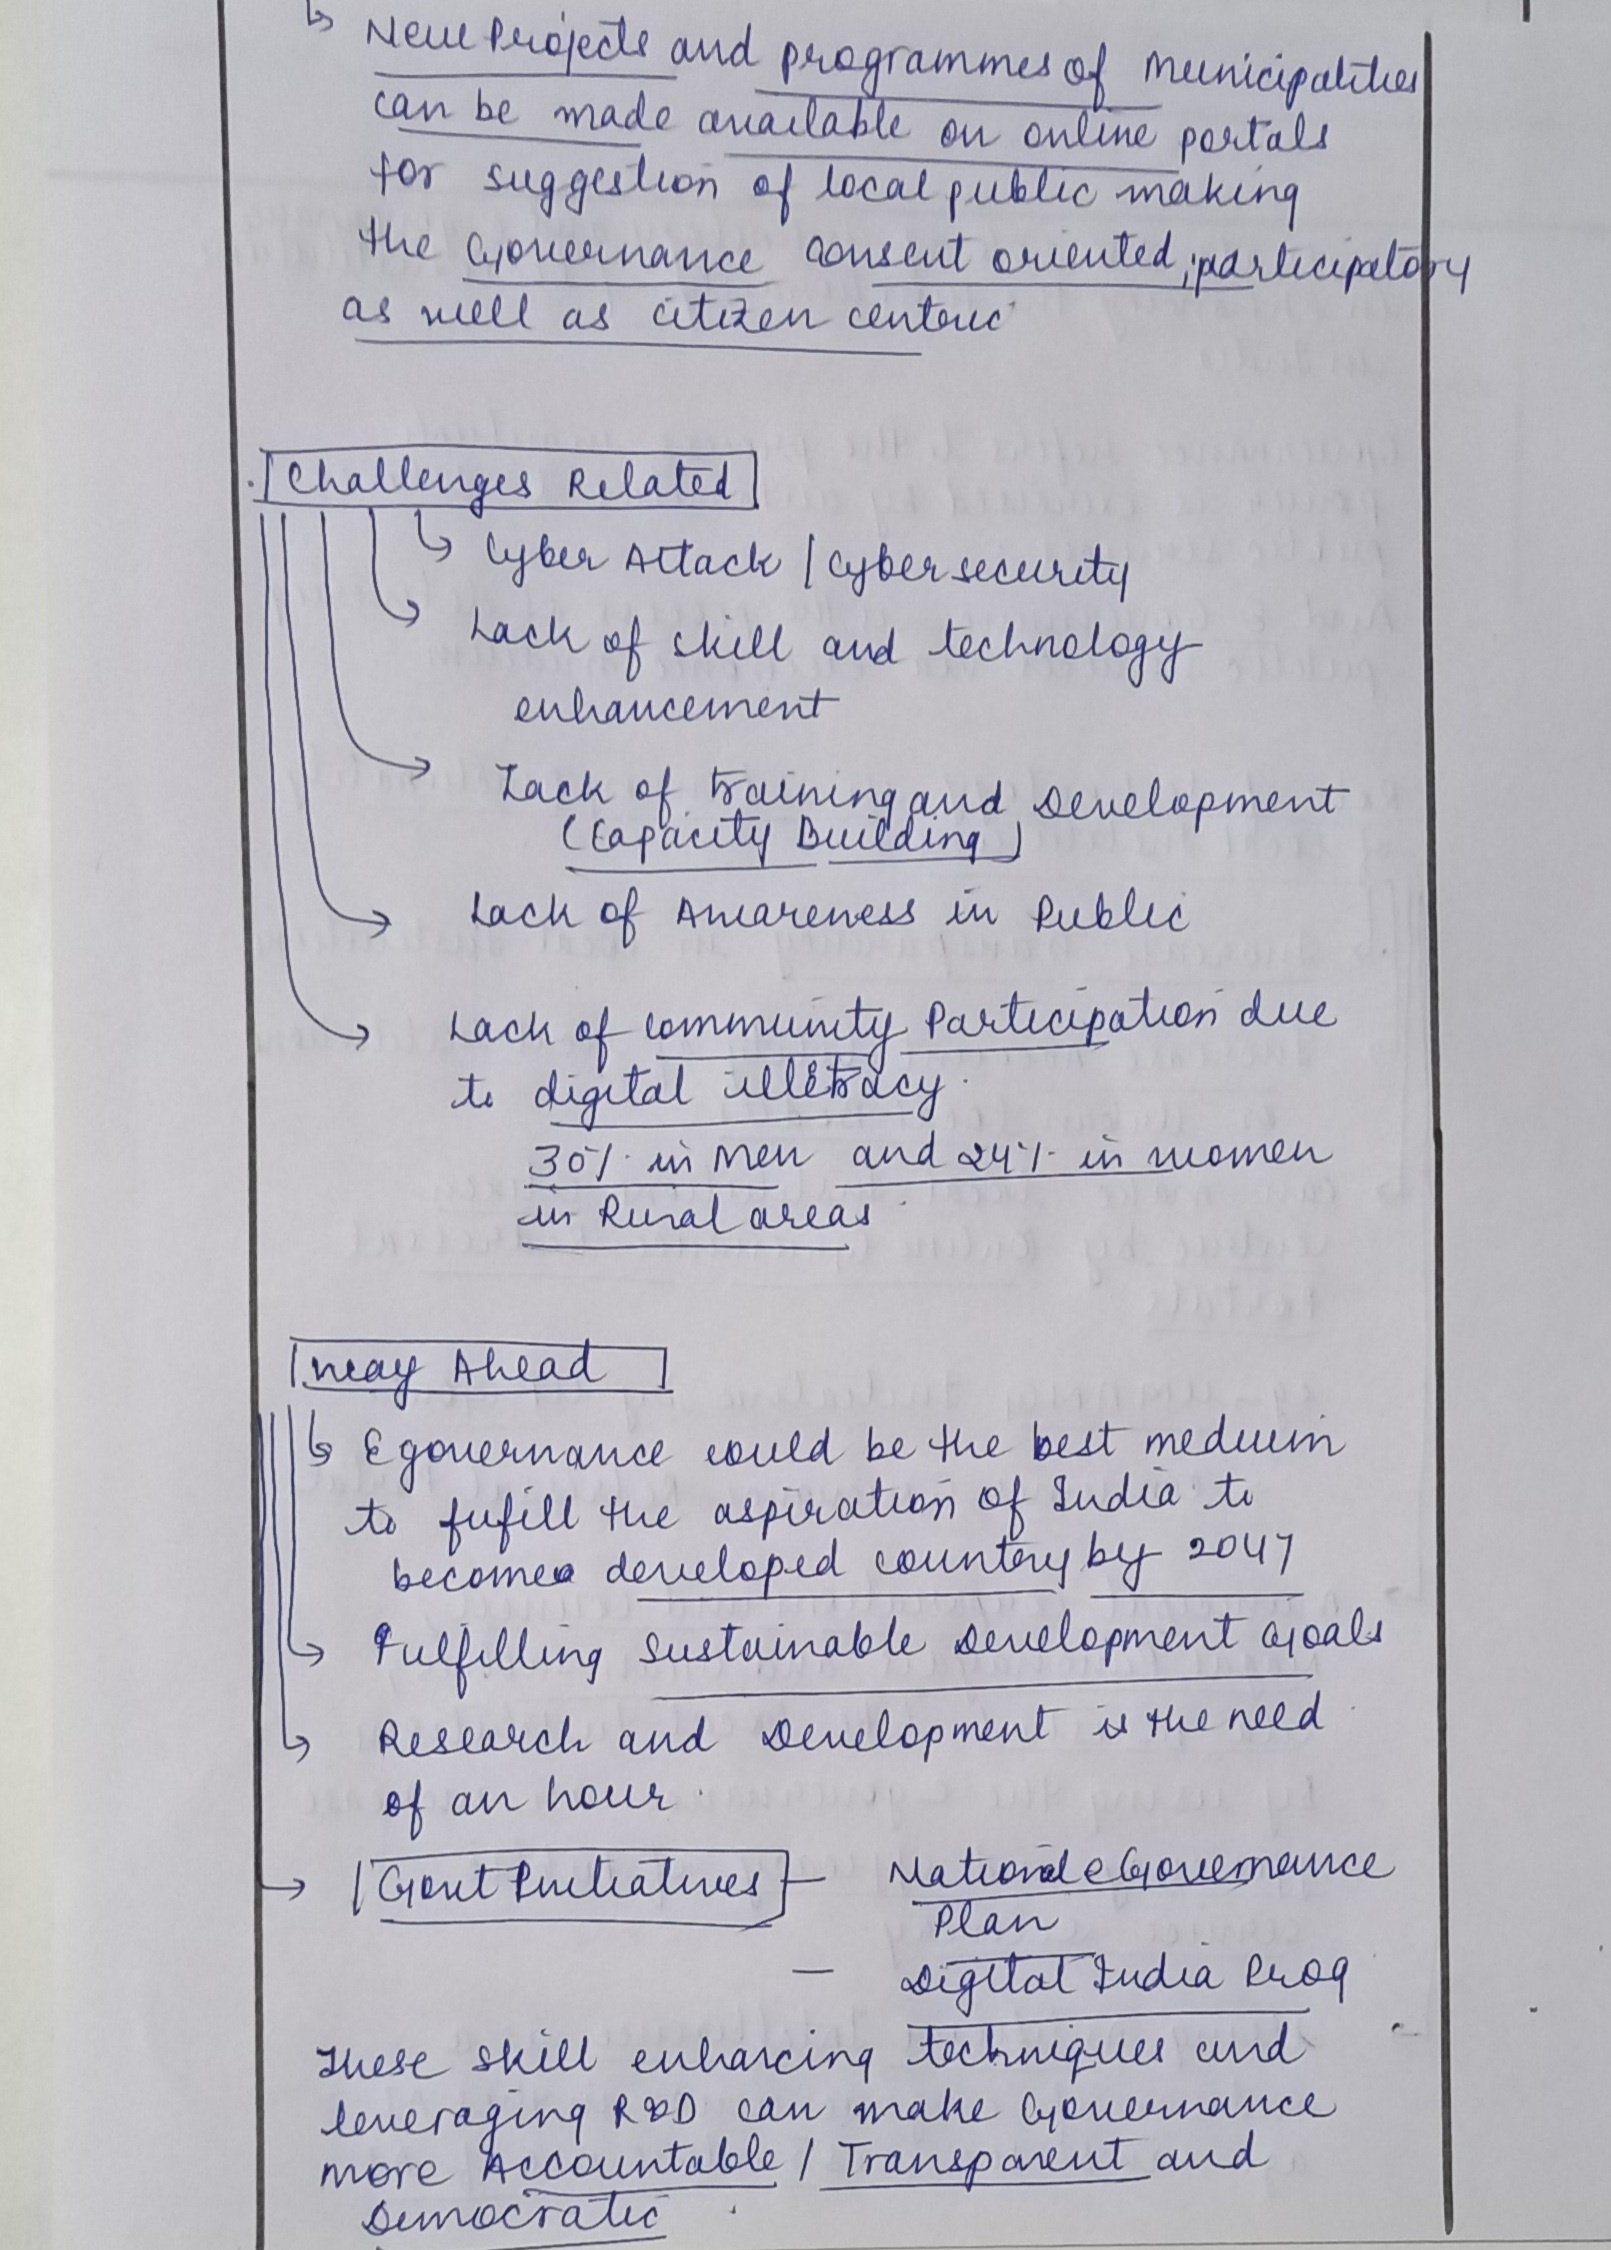 New Projects and programmes of Municipalities
can be made available on online portals
for suggestion of local public making
the Governance consent oriented, participatory
as well as citizen centeric
Challenges Related
Cyber Attack / Cyber security
Lack of skill and technology
enhancement
Lack of training and Development
(Capacity Building)
Lack of Awareness in Public
Lack of community Participation due
to digital illetracy.
30% in Men and 24% in women
in Rural areas
Way Ahead
E governance could be the best medium
to fufill the aspiration of India to
become a developed country by 2047
Fulfilling Sustainable Development Goals
Research and Development is the need
of an hour.
Govt Initiatives - National eGovernance
Plan
- Digital India Prog
These skill enhancing techniques and
leveraging R&D can make Governance
more Accountable / Transparent and
Democratic.